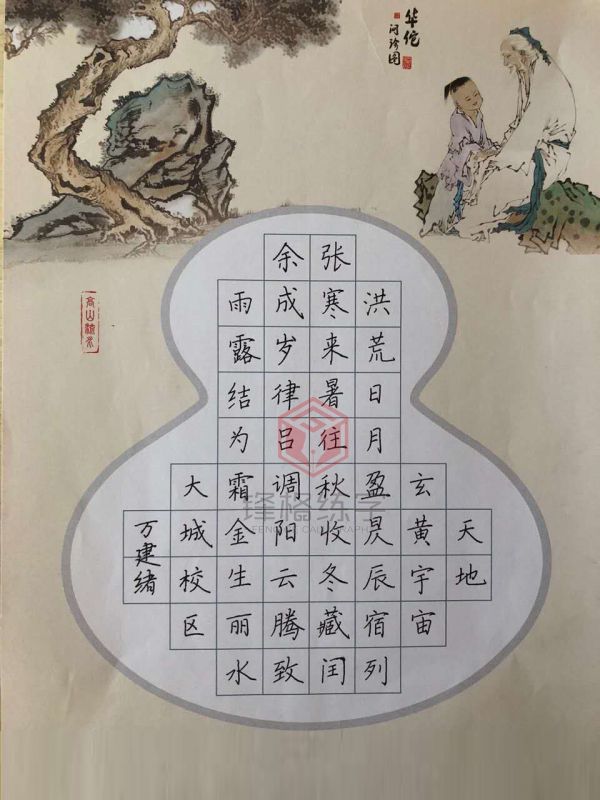 华佗
问诊图
天地
玄黄宇宙
洪荒日月盈昃辰宿列
张寒来暑往秋收冬藏闰
余成岁律吕调阳云腾致
雨露结为霜金生丽水
大城校区
万建绪
锋格练字